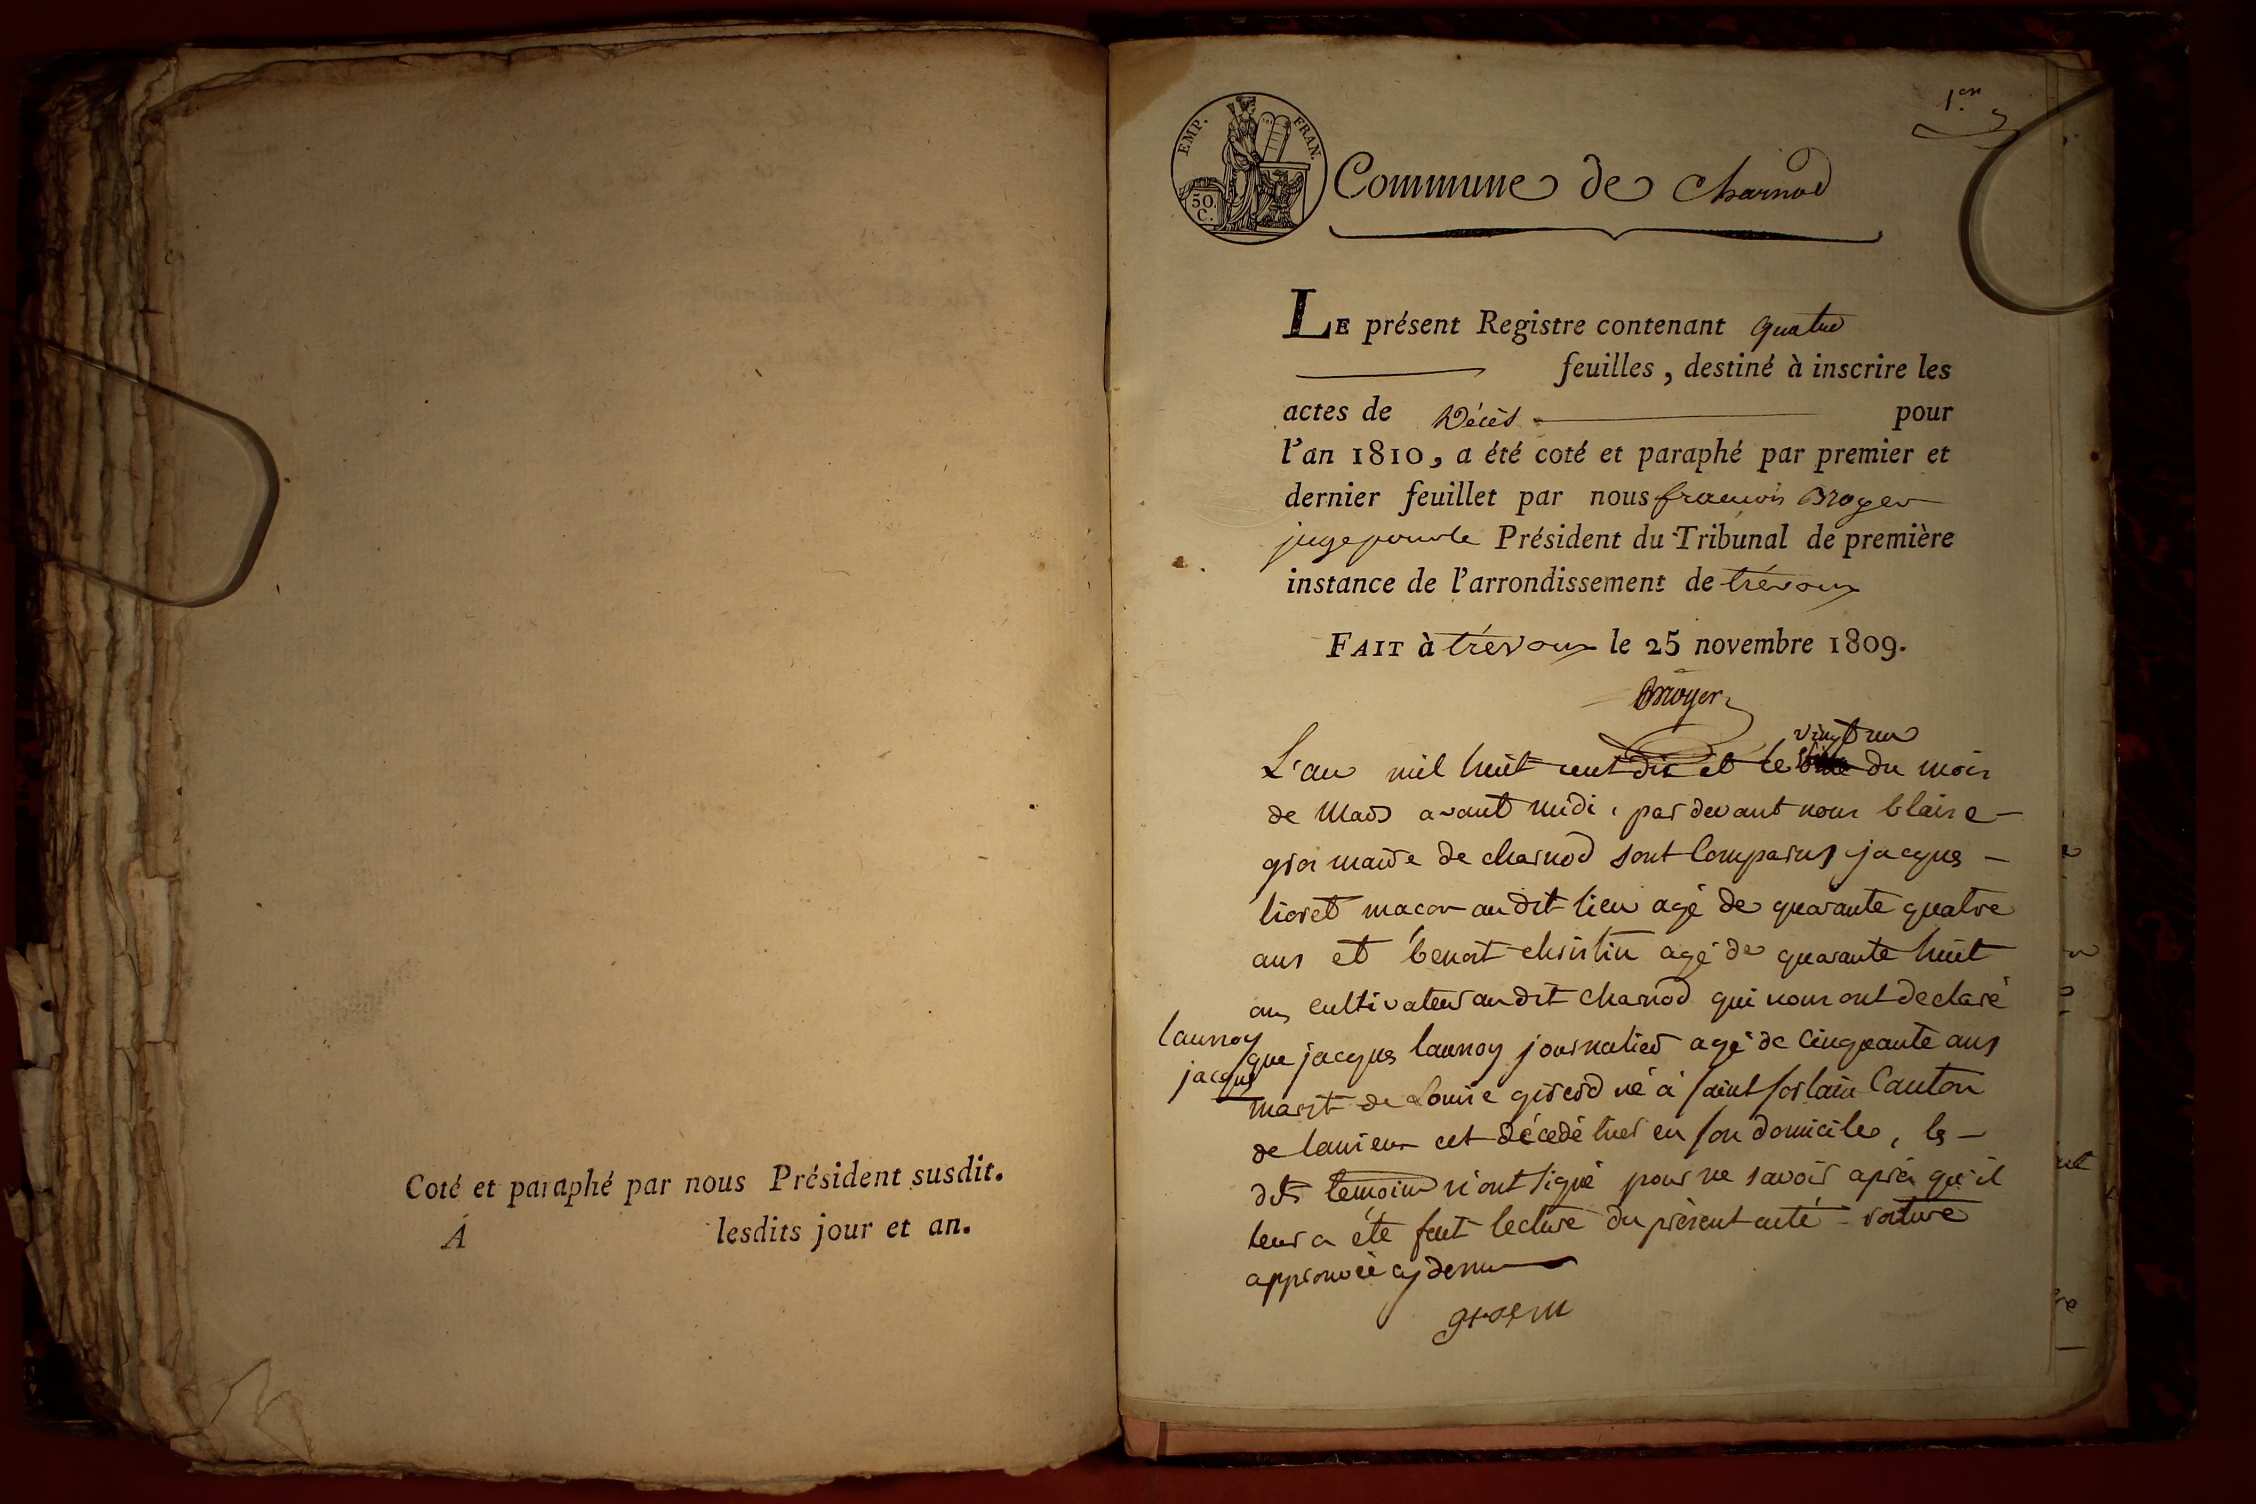 Coté et paraphé par nous Président susdit.
A lesdits jour et an.
1.er
EMP. FRAN.
50.
C.
Commune de Charnod
LE présent Registre contenant quatre
feuilles, destiné à inscrire les
actes de Décès pour
l'an 1810, a été coté et paraphé par premier et
dernier feuillet par nous francois Broyer
juge pour le Président du Tribunal de première
instance de l'arrondissement de trévoux
FAIT à trévoux le 25 novembre 1809.
Broyer
vingt un
L'an mil huit cent dix et le du mois
de Mars avant midi, par devant nous blaise
gros maire de charnod sont Comparus jacques
lioret macon au dit lieu agé de quarante quatre
ans et benoit christin agé de quarante huit
ans cultivateur au dit charnod qui nous ont declaré
launoy
jacques
que jacques launoy journalier agé de Cinquante ans
marit de Louise girerd né à saint sorlain Canton
de lanieux est décedé hier en son domicile, les
dits temoins n'ont signé pour ne savoir aprés qu'il
leur a été fait lecture du présent acté rature
approuvée cy dessus
gros m